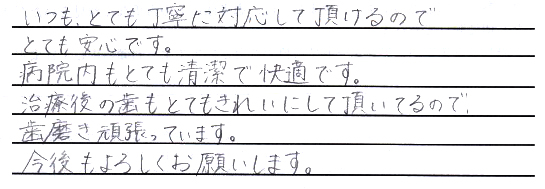 いつも、とても丁寧に対応して頂けるので
とても安心です。
病院内もとても清潔で快適です。
治療後の歯もとてもきれいにして頂いてるので、
歯磨き頑張っています。
今後もよろしくお願いします。